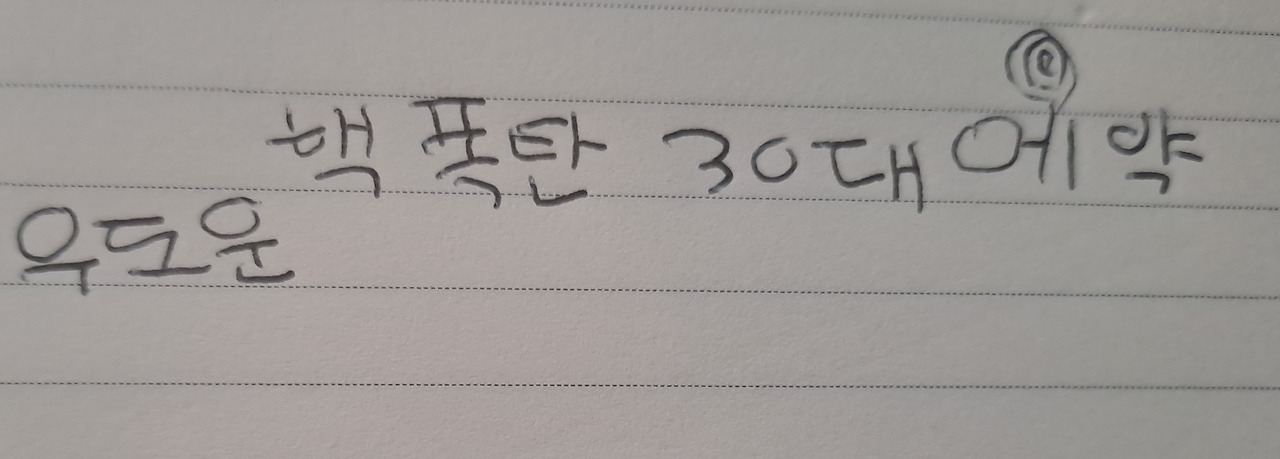 핵 폭탄 30대 에약
우도운